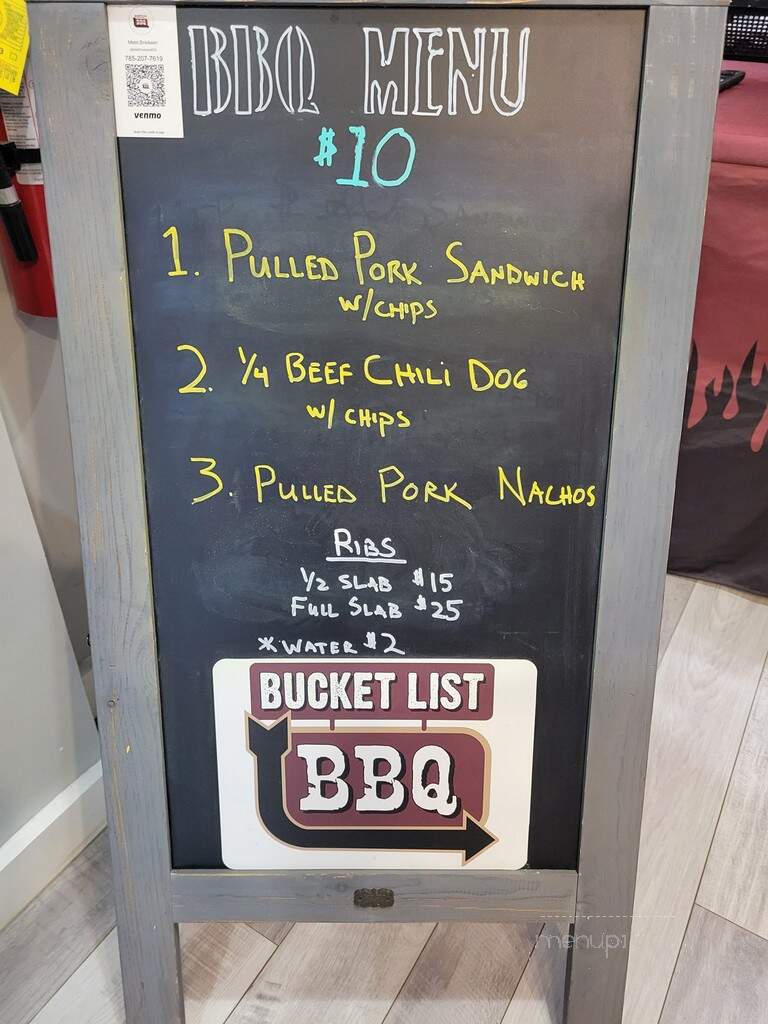 785-207-7619
venmo
BBQ MENU
$10
1. PULLED PORK SANDWICH
W/CHIPS
2. 1/4 BEEF CHILI DOG
W/ CHIPS
3. PULLED PORK NACHOS
RIBS
1/2 SLAB $15
FULL SLAB $25
*WATER $2
BUCKET LIST
BBQ
menupi